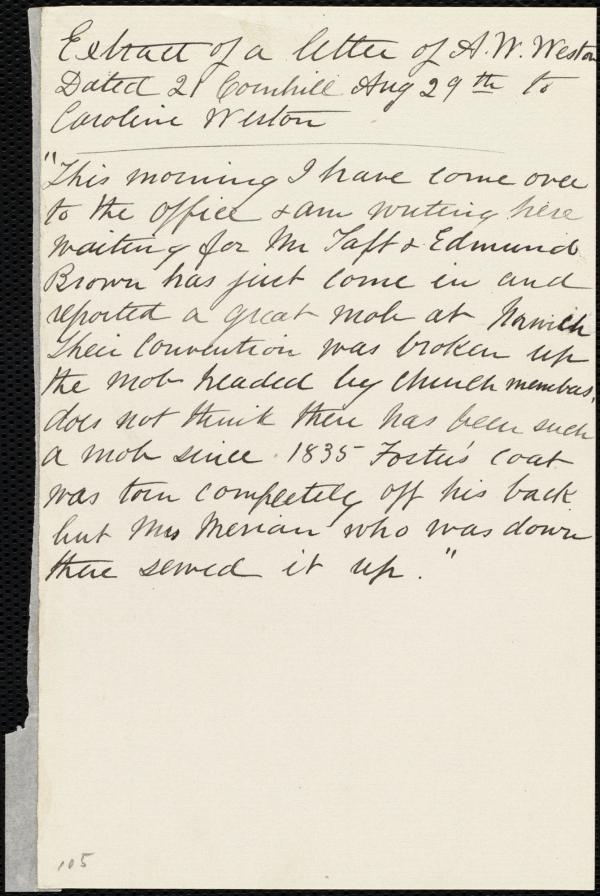 Extract of a letter of A. W. Weston
Dated 21 Cornhill Aug 29th to
Caroline Weston
"This morning I have come over
to the office & am writing here
waiting for Mr Taft & Edmund
Brown has just come in and
reported a great mob at
Their Convention was broken up
the mob headed by church members,
does not think there has been such
a mob since 1835 Foster's coat
was torn completely off his back
but Mrs Merian who was down
there sewed it up."
105